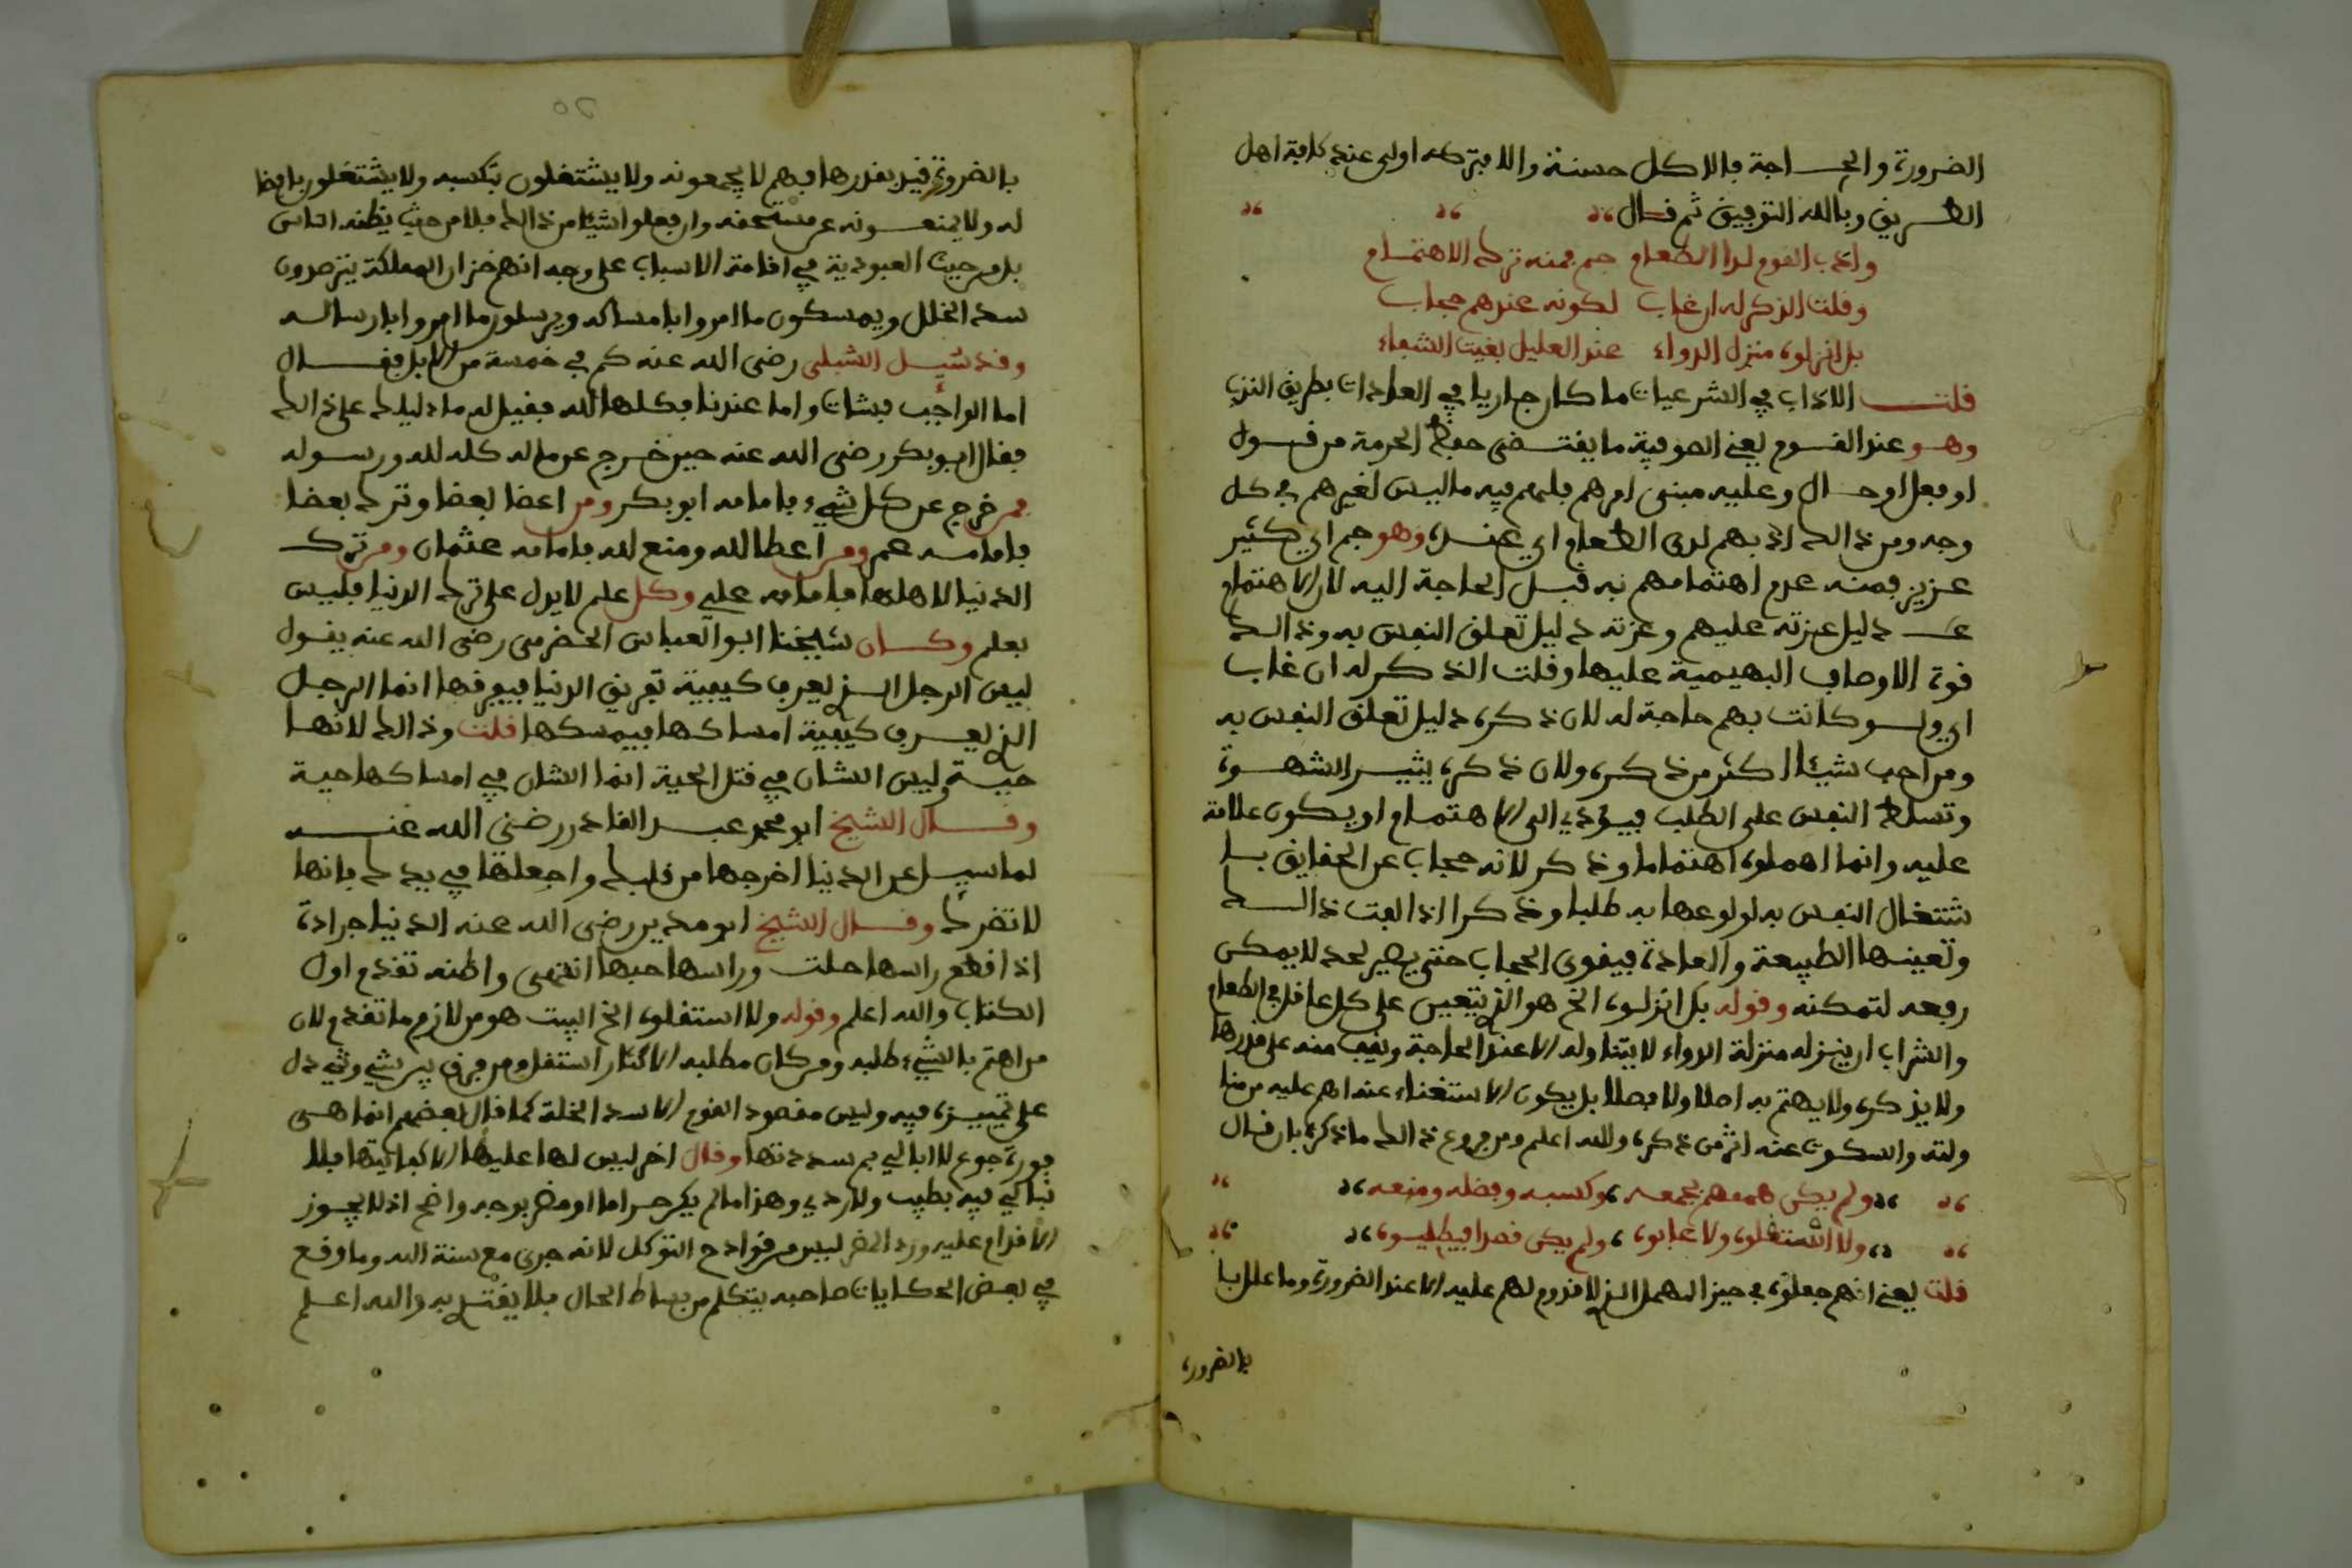 الضرورة والحاجة فالاكل حسنة والا فتركه اولى عند كافة اهل
الطريق وبالله التوفيق ثم قال
وادب القوم لدا الطعام جم فمنه ترك الاهتمام
وقلت الذكر له ان غاب لكونه عندهم حجاب
بل انزلوه منزل الدواء عند العليل بغيت الشفاء
قلت الاداب في الشرعيات ما كان جاريا في العادات بطريق الندب
وهو عند القوم يعني الصوفية ما يقتضي حفظ الحرمة من قول
او فعل او حال وعليه مبنى امرهم فلهم فيه ما ليس لغيرهم في كل
وجه ومن ذالك ادبهم لدى الطعام اي عنده وهو جم اي كثير
عزيز فمنه عدم اهتمامهم به قبل الحاجة اليه لان الاهتمام
دليل عزته عليهم وعزته دليل تعلق النفس به وذالك
قوة الاوصاف البهيمية عليها وقلت الذكر له ان غاب
اي ولو كانت بهم حاجة له لان ذكره دليل تعلق النفس به
ومن احب شيئا اكثر من ذكره ولان ذكره يثير الشهوة
وتسلط النفس على الطلب فيؤدي الى الاهتمام او يكون علامة
عليه وانما اهملوه اهتماما وذكر لانه حجاب عن الحقايق با
شتغال النفس به لولوعها به طلبا وذكرا اذا الفت ذالك
وتعينها الطبيعة والعادة فيقوى الحجاب حتى يصير لحد لا يمكن
رفعه لتمكنه وقوله بل انزلوه الخ هو الذي يتعين على كل عاقل في الطعام
والشراب ان ينزله منزلة الدواء لا يتناوله الا عند الحاجة ويقف منه على قدرها
ولا يذكره ولا يهتم به اصلا ولا فصلا بل يكون الاستغناء عنه اهم عليه من
ولته والسكوت عنه اثر من ذكره والله اعلم ومن فروع ذالك ما ذكره بان قال
ولم يكن همهم بجمعه وكسبه وفضله ومنعه
ولا اشتغلوه ولا عابوه ولم يكن قصدا فيطلبوه
قلت يعني انهم جعلوه في حيز المهمل الذي لا قدوم لهم عليه الا عند الضرورة وما علل با
بالضرورة
بالضرورة قيد بقدرها فهم لا يجمعونه ولا يشتغلون بتكسبه ولا يشتغلون بافضا
له ولا يمنعونه عن مستحقه وان فعلوا شيئا من ذالك فلا من حيث يظنه الناس
بل من حيث العبودية في اقامة الاسباب على وجه انهم خزان المملكة يترصدون
سد الخلل ويمسكون ما امروا بامساكه ويرسلون ما امروا بارساله
وقد سئيل الشبلي رضي الله عنه كم في خمسة من الابل فقال
اما الواجب فشات واما عندنا فكلها لله فقيل له ما دليلك على ذالك
فقال ابو بكر رضي الله عنه حين خرج عن ماله كله لله ورسوله
فمن خرج عن كل شيء فامامه ابو بكر ومن اعطا بعضا وترك بعضا
فامامه عمر ومن اعطا لله ومنع لله فامامه عثمان ومن ترك
الدنيا لاهلها فامامه علي وكل علم لا يدل على ترك الدنيا فليس
بعلم وكان شيخنا ابو العباس الحضرمي رضي الله عنه يقول
ليس الرجل الذي يعرف كيفية تفريق الدنيا فيفرقها انما الرجل
الذي يعرف كيفية امساكها فيمسكها قلت وذالك لانها
حية وليس الشان في قتل الحية انما الشان في امساكها حية
وقال الشيخ ابو محمد عبد القادر رضي الله عنه
لما سيل عن الدنيا اخرجها من قلبك واجعلها في يدك فانها
لا تضرك وقال الشيخ ابو مدين رضي الله عنه الدنيا جرادة
اذا قطع راسها حلت وراسها حبها انتهى واظنه تقدم اول
الكتاب والله اعلم وقوله ولا استقلوه الخ البيت هو من لازم ما تقدم لان
من اهتم بالشيء طلبه ومن كان مطلبه الاكثار استقل ومن فرق بين شيء وشيء دل
على تمييزه فيه وليس مقصود القوم الا سد الخلة كما قال بعضهم انما هي
فورة جوع لا ابالي بم سددتها وقال اخر ليس لها عليها الا كفايتها فلا
نبالي فيه بطيب ولا ردي وهذا ما لم يكن حراما او مضر بوجه واضح اذ لا يجوز
الاقدام عليه ورد المضر ليس من قوادح التوكل لانه جرى مع سنة الله وما وقع
في بعض الحكايات صاحبه يتكلم من بساط الحال فلا يقتدي به والله اعلم